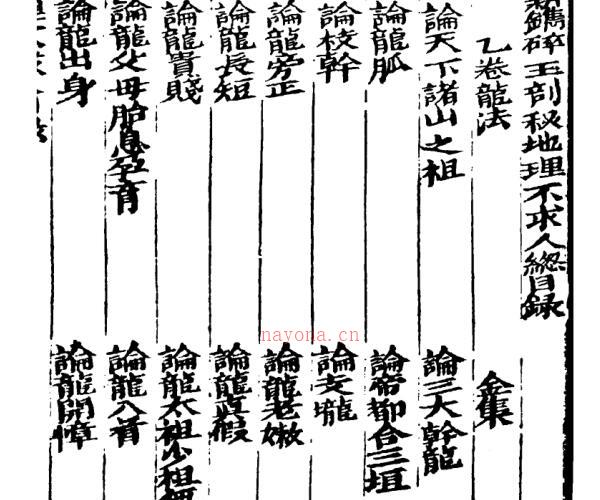 鐫碎玉剖秘地理不求人總目錄
乙卷龍法 金集
論天下諸山之祖 論三大幹龍
論龍脉 論帝都合三垣
論枝幹 論支壠
論龍旁正 論龍老嫩
論龍長短 論龍真假
論龍貴賤 論龍太祖少祖
論龍父母胎息孕育 論龍入首
論龍出身 論龍開幛
nayona.cn